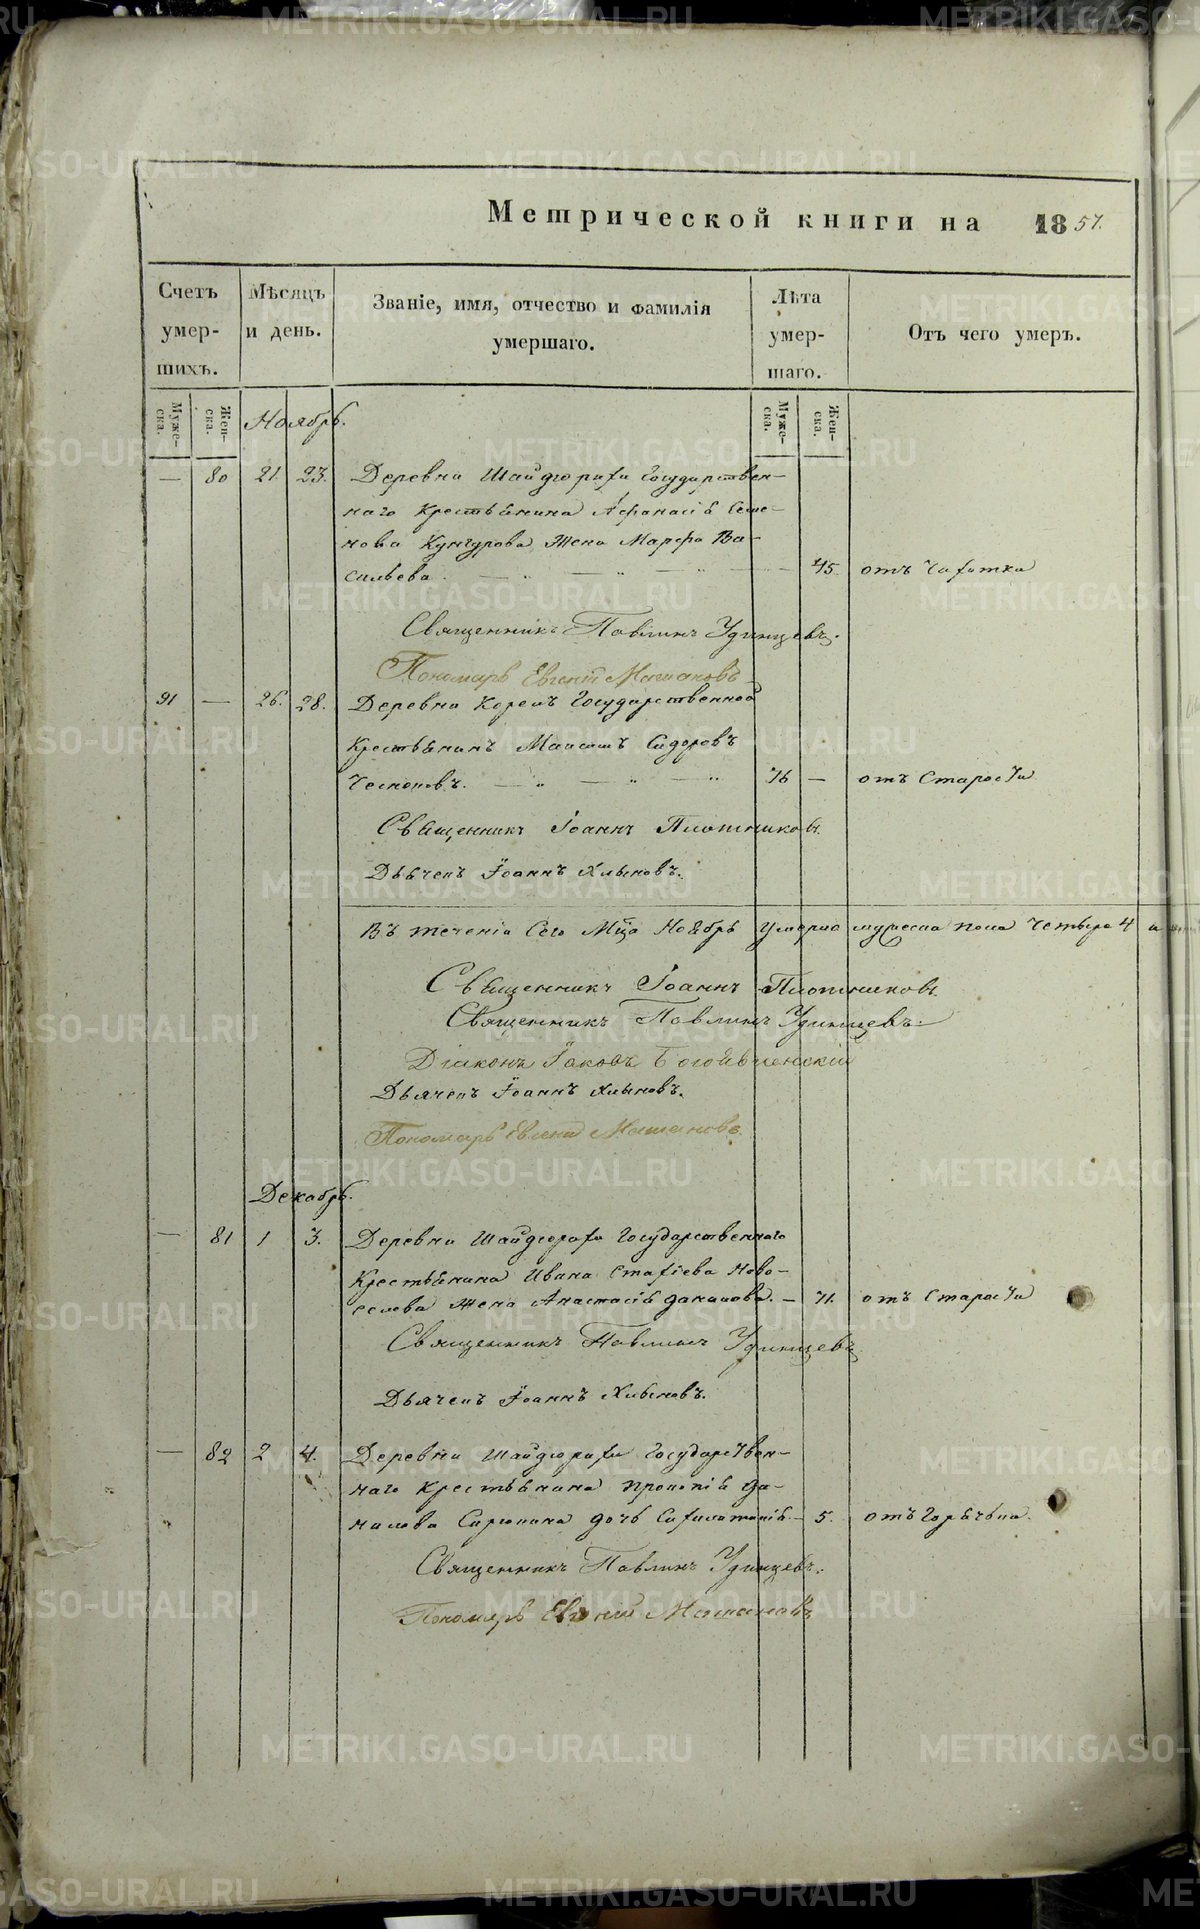 Метрической книги на 1857.
Счетъ умершихъ.
Мѣсяцъ и день.
Званіе, имя, отчество и фамилія умершаго.
Лѣта умершаго.
Отъ чего умеръ.
Мужеска.
Женска.
Мужеска.
Женска.
Ноябрь.
— 80 21. 23. Деревни Шайдурихи Государствен-
наго Крестьянина Афанасія Семе-
нова Кунгурова Жена Марфа Ва-
сильева. — 45. отъ Чахотки
Священникъ Павлинъ Удинцевъ.
Пономарь Евгеній
91 — 26. 28. Деревни Государственной
Крестьянинъ Сидоровъ
76 — отъ Старости
Священникъ Іоаннъ Плотниковъ.
Дьячекъ Іоаннъ Хлыновъ.
Въ теченіи Сего Мца Ноябрѣ Умерло мужеска пола Четыре 4 и
Священникъ Іоаннъ Плотниковъ.
Священникъ Павлинъ Удинцевъ.
Діаконъ Іаковъ Богоявленскій
Дьячекъ Іоаннъ Хлыновъ.
Пономарь Евгеній
Декабрь.
— 81 1 3. Деревни Шайдурихи Государственнаго
Крестьянина Ивана Ново-
селова Жена Анастасія Данилова. — 71. отъ Старости
Священникъ Павлинъ Удинцевъ
Дьячекъ Іоаннъ Хлыновъ.
— 82 2 4. Деревни Шайдурихи Государствен-
наго Крестьянина Прокопія Да-
нилова дочь — 5. отъ Горячки.
Священникъ Павлинъ Удинцевъ.
Пономарь Евгеній
METRIKI.GASO-URAL.RU